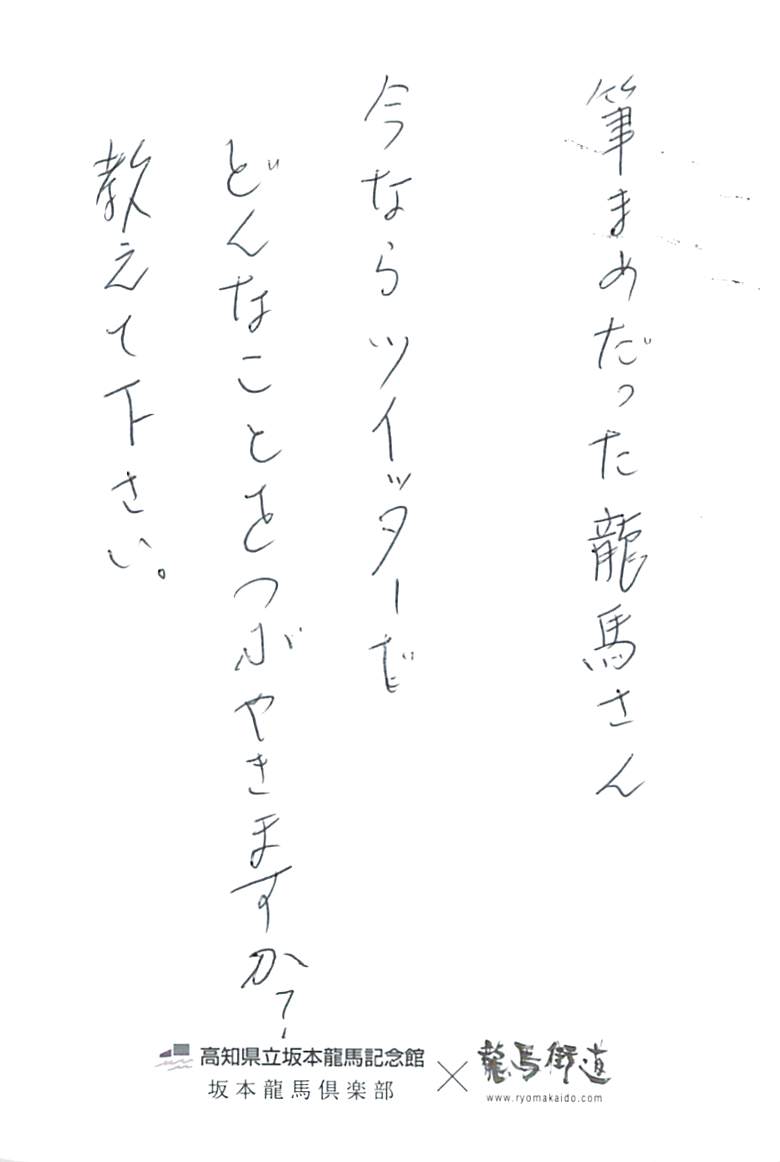 筆まめだった龍馬さん
今ならツイッターで
どんなことをつぶやきますか?
教えて下さい。
高知県立坂本龍馬記念館
坂本龍馬倶楽部
×
龍馬街道
www.ryomakaido.com